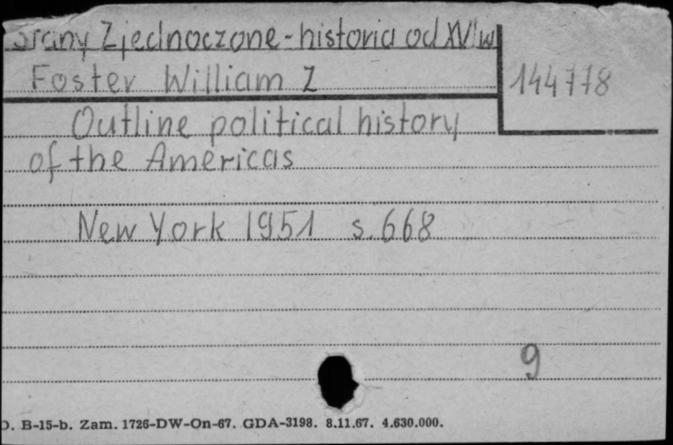 Stany Zjednoczone - historia od XV w
Foster William Z
144778
Outline political history
of the Americas
New York 1951 s. 668
9
D. B-15-b. Zam. 1726-DW-On-67. GDA-3198. 8.11.67. 4.630.000.